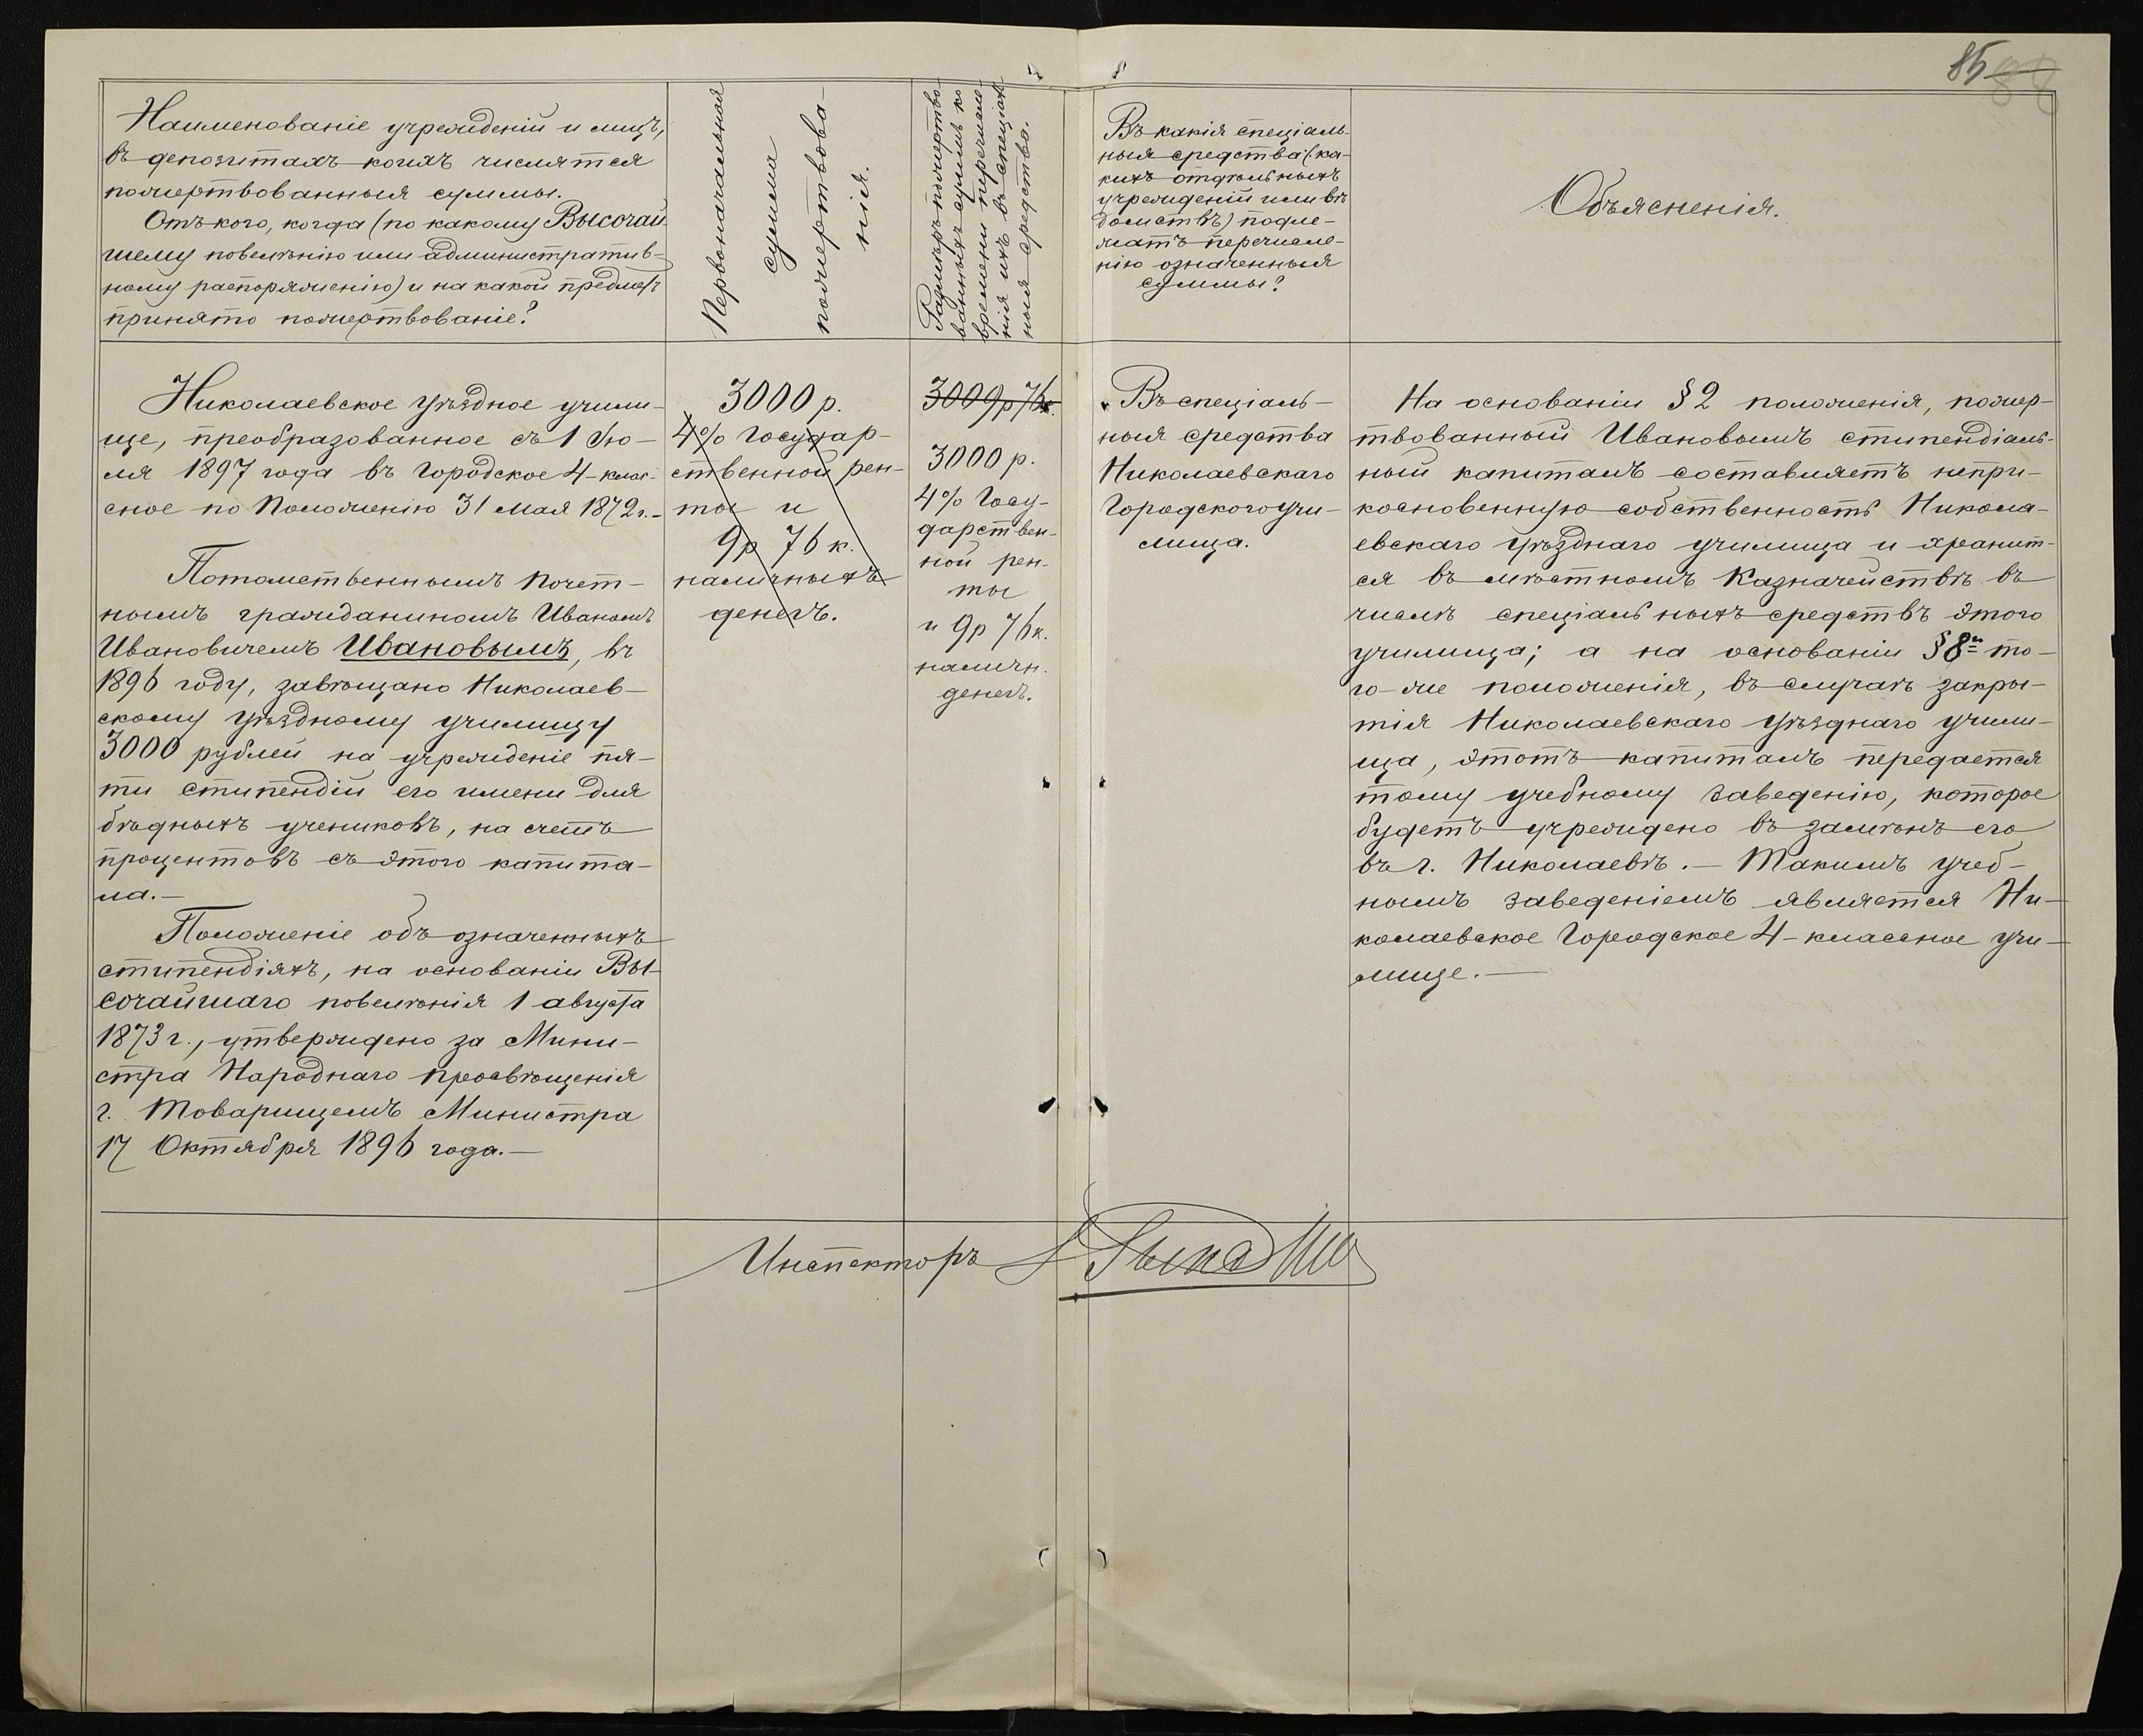 85
88
Наименованіе учрежденій и лицъ,
въ депозитахъ коихъ числятся
пожертвованныя суммы.
Отъ кого, когда (по какому Высочай-
шему повелѣнію или административ-
ному распоряженію) и на какой предметъ
принято пожертвованіе?
Первоначальная
сумма
пожертвова-
нія.
Размѣръ пожертво-
ванныхъ суммъ ко
времени перечисле-
нія ихъ въ спеціаль-
ныя средства.
Въ какія спеціаль-
ныя средства (ка-
кихъ отдѣльныхъ
учрежденій или вѣ-
домствъ) подле-
жатъ перечисле-
нію означенныя
суммы?
Объясненія.
Николаевское уѣздное учили-
ще, преобразованное съ 1 Ію-
ля 1897 года въ Городское 4-клас-
сное по Положенію 31 Мая 1872 г.-
Потомственнымъ почет-
нымъ гражданиномъ Иваномъ
Ивановичемъ Ивановымъ, въ
1896 году, завѣщано Николаев-
скому уѣздному училищу
3000 рублей на учрежденіе пя-
ти стипендій его имени для
бѣдныхъ учениковъ, на счетъ
процентовъ съ этого капита-
ла.-
Положеніе объ означенныхъ
стипендіяхъ, на основаніи Вы-
сочайшаго повелѣнія 1 августа
1873 г., утверждено за Мини-
стра Народнаго Просвѣщенія
г. Товарищемъ Министра
17 Октября 1896 года.-
3000 р.
4% Государ-
ственной рен-
ты и
9 р 76 к.
наличныхъ
денегъ.
3009 р 76 к.
3000 р.
4% Госу-
дарствен-
ной рен-
ты
и 9 р 76 к.
наличн.
денегъ.
Въ спеціаль-
ныя средства
Николаевскаго
Городского учи-
лища.
На основаніи § 2 положенія, пожер-
твованный Ивановымъ стипендіаль-
ный капиталъ составляетъ непри-
косновенную собственность Никола-
евскаго уѣзднаго училища и хранит-
ся въ мѣстномъ Казначействѣ въ
числѣ спеціальныхъ средствъ этого
училища; а на основаніи § 8и то-
го-же положенія, въ случаѣ закры-
тія Николаевскаго уѣзднаго учили-
ща, этотъ капиталъ передается
тому учебному заведенію, которое
будетъ учреждено въ замѣнъ его
въ г. Николаевѣ.- Такимъ учеб-
нымъ заведеніемъ является Ни-
колаевское Городское 4-классное учи-
лище.-
Инспекторъ